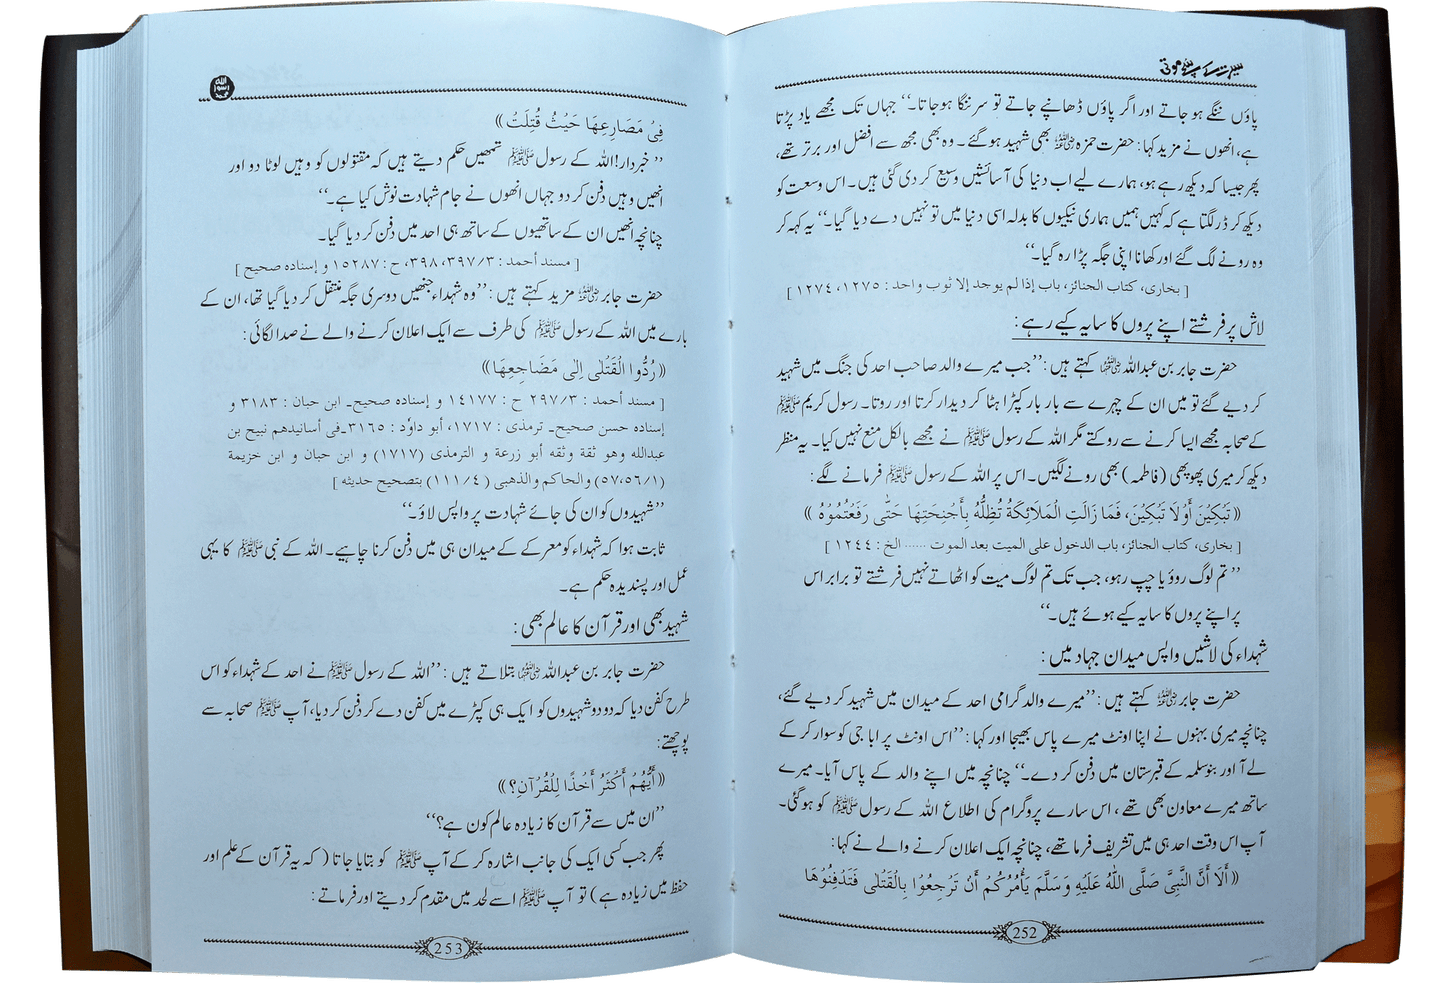 سیرت کے سچے موتی
پاؤں ننگے ہو جاتے اور اگر پاؤں ڈھانپے جاتے تو سر ننگا ہو جاتا۔‘‘ جہاں تک مجھے یاد پڑتا
ہے، انھوں نے مزید کہا: حضرت حمزہ رضی اللہ عنہ بھی شہید ہو گئے۔ وہ بھی مجھ سے افضل اور برتر تھے،
پھر جیسا کہ دیکھ رہے ہو، ہمارے لیے اب دنیا کی آسائشیں وسیع کر دی گئی ہیں۔ اس وسعت کو
دیکھ کر ڈر لگتا ہے کہ کہیں ہمیں ہماری نیکیوں کا بدلہ اسی دنیا میں تو نہیں دے دیا گیا۔‘‘ یہ کہہ کر
وہ رونے لگ گئے اور کھانا اپنی جگہ پڑا رہ گیا۔‘‘
[ بخاری، کتاب الجنائز، باب إذا لم یوجد إلا ثوب واحد : ١٢٧٥، ١٢٧٤ ]
لاش پر فرشتے اپنے پروں کا سایہ کیے رہے:
حضرت جابر بن عبداللہ رضی اللہ عنہما کہتے ہیں: ’’جب میرے والد صاحب احد کی جنگ میں شہید
کر دیے گئے تو میں ان کے چہرے سے بار بار کپڑا ہٹا کر دیدار کرتا اور روتا۔ رسول کریم ﷺ
کے صحابہ مجھے ایسا کرنے سے روکتے مگر اللہ کے رسول ﷺ نے مجھے بالکل منع نہیں کیا۔ یہ منظر
دیکھ کر میری پھوپھی (فاطمہ) بھی رونے لگیں۔ اس پر اللہ کے رسول ﷺ فرمانے لگے:
« تَبْكِيْنَ أَوْ لَا تَبْكِيْنَ، فَمَا زَالَتِ الْمَلَائِكَةُ تُظِلُّهُ بِأَجْنِحَتِهَا حَتّٰى رَفَعْتُمُوْهُ »
[ بخاری، کتاب الجنائز، باب الدخول علی المیت بعد الموت ...... الخ : ١٢٤٤ ]
’’ تم لوگ روؤ یا چپ رہو، جب تک تم لوگ میت کو اٹھاتے نہیں فرشتے تو برابر اس
پر اپنے پروں کا سایہ کیے ہوئے ہیں۔‘‘
شہداء کی لاشیں واپس میدان جہاد میں:
حضرت جابر رضی اللہ عنہ کہتے ہیں: ’’میرے والد گرامی احد کے میدان میں شہید کر دیے گئے،
چنانچہ میری بہنوں نے اپنا اونٹ میرے پاس بھیجا اور کہا: ’’اس اونٹ پر ابا جی کو سوار کر کے
لے آ اور بنو سلمہ کے قبرستان میں دفن کر دے۔‘‘ چنانچہ میں اپنے والد کے پاس آیا۔ میرے
ساتھ میرے معاون بھی تھے، اس سارے پروگرام کی اطلاع اللہ کے رسول ﷺ کو ہو گئی۔
آپ اس وقت احد ہی میں تشریف فرما تھے، چنانچہ ایک اعلان کرنے والے نے کہا:
« أَلَا أَنَّ النَّبِيَّ صَلَّى اللّٰهُ عَلَيْهِ وَسَلَّمَ يَأْمُرُكُمْ أَنْ تَرْجِعُوْا بِالْقَتْلٰى فَتَدْفِنُوْهَا
252
اللہ رسول محمد
فِيْ مَصَارِعِهَا حَيْثُ قُتِلَتْ »
’’ خبردار! اللہ کے رسول ﷺ تمھیں حکم دیتے ہیں کہ مقتولوں کو وہیں لوٹا دو اور
انھیں وہیں دفن کر دو جہاں انھوں نے جام شہادت نوش کیا ہے۔‘‘
چنانچہ انھیں ان کے ساتھیوں کے ساتھ ہی احد میں دفن کر دیا گیا۔
[ مسند أحمد : ٣٩٧/٣، ٣٩٨، ح : ١٥٢٨٧ و إسنادہ صحیح ]
حضرت جابر رضی اللہ عنہ مزید کہتے ہیں: ’’وہ شہداء جنھیں دوسری جگہ منتقل کر دیا گیا تھا، ان کے
بارے میں اللہ کے رسول ﷺ کی طرف سے ایک اعلان کرنے والے نے صدا لگائی:
« رُدُّوا الْقَتْلٰى إِلٰى مَضَاجِعِهَا »
[ مسند أحمد : ٢٩٧/٣ ح : ١٤١٧٧ و إسنادہ صحیح۔ ابن حبان : ٣١٨٣ و
إسنادہ حسن صحیح۔ ترمذی : ١٧١٧، أبو داوٗد : ٣١٦٥۔ فی أسانیدھم نبیح بن
عبداللہ وھو ثقة وثقہ أبو زرعة و الترمذی (١٧١٧) و ابن حبان و ابن خزیمة
(٥٧،٥٦/١) والحاکم والذھبی (١١١/٤) بتصحیح حدیثہ ]
’’شہیدوں کو ان کی جائے شہادت پر واپس لاؤ۔‘‘
ثابت ہوا کہ شہداء کو معرکے کے میدان ہی میں دفن کرنا چاہیے۔ اللہ کے نبی ﷺ کا یہی
عمل اور پسندیدہ حکم ہے۔
شہید بھی اور قرآن کا عالم بھی:
حضرت جابر بن عبداللہ رضی اللہ عنہما بتلاتے ہیں: ’’اللہ کے رسول ﷺ نے احد کے شہداء کو اس
طرح کفن دیا کہ دو دو شہیدوں کو ایک ہی کپڑے میں کفن دے کر دفن کر دیا، آپ ﷺ صحابہ سے
پوچھتے:
« أَيُّهُمْ أَكْثَرُ أَخْذًا لِلْقُرْآنِ؟ »
’’ان میں سے قرآن کا زیادہ عالم کون ہے؟‘‘
پھر جب کسی ایک کی جانب اشارہ کر کے آپ ﷺ کو بتایا جاتا ( کہ یہ قرآن کے علم اور
حفظ میں زیادہ ہے) تو آپ ﷺ اسے لحد میں مقدم کر دیتے اور فرماتے:
253